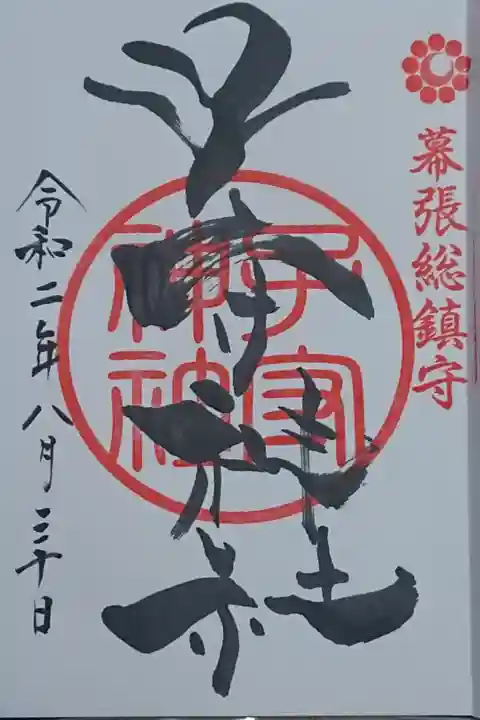 幕張総鎮守
子守神社
子守神社
令和二年八月三十日